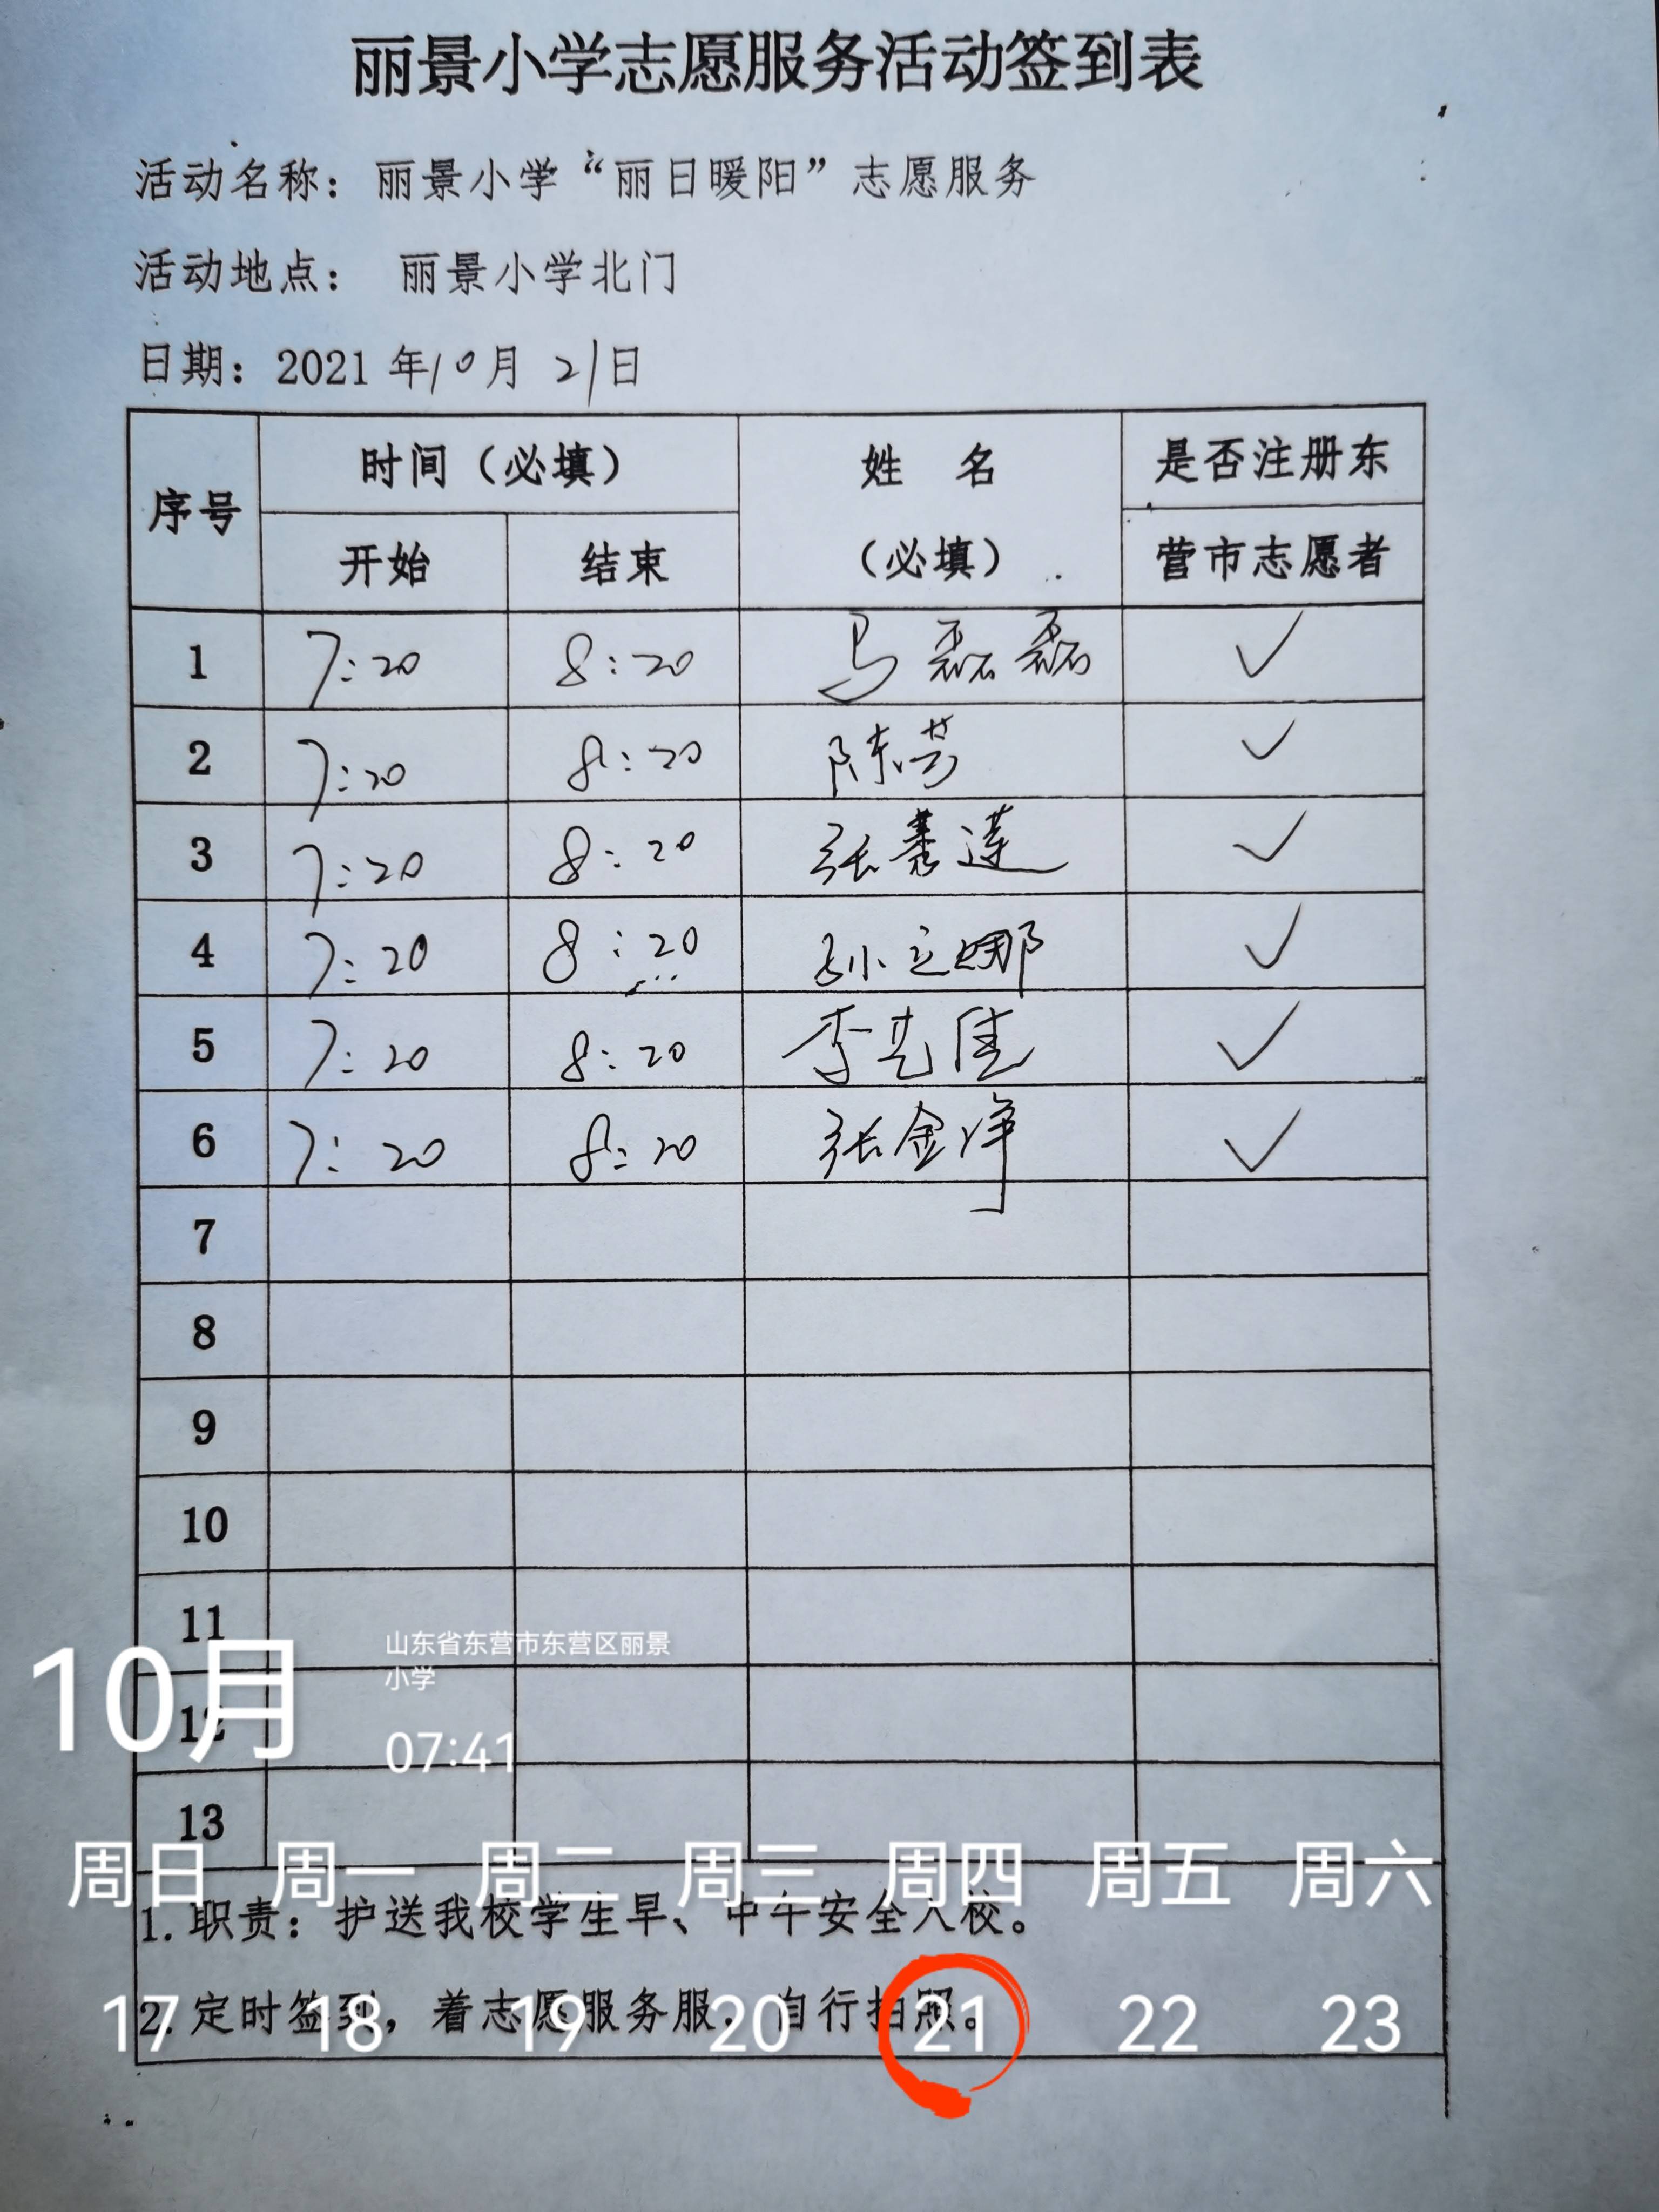 丽景小学志愿服务活动签到表
活动名称：丽景小学“丽日暖阳”志愿服务
活动地点： 丽景小学北门
日期：2021 年10月 21日
序号 时间（必填） 姓 名 是否注册东
开始 结束 （必填） 营市志愿者
1 7:20 8:20 马磊磊 ✓
2 7:20 8:20 陈芸 ✓
3 7:20 8:20 张 莲 ✓
4 7:20 8:20 孙立娜 ✓
5 7:20 8:20 李艺佳 ✓
6 7:20 8:20 张金净 ✓
7
8
9
10
11
山东省东营市东营区丽景
小学
10月
12
07:41
13
周日 周一 周二 周三 周四 周五 周六
1.职责：护送我校学生早、中午安全入校。
2.定时签到，着志愿服务服，自行拍照。
17 18 19 20 21 22 23